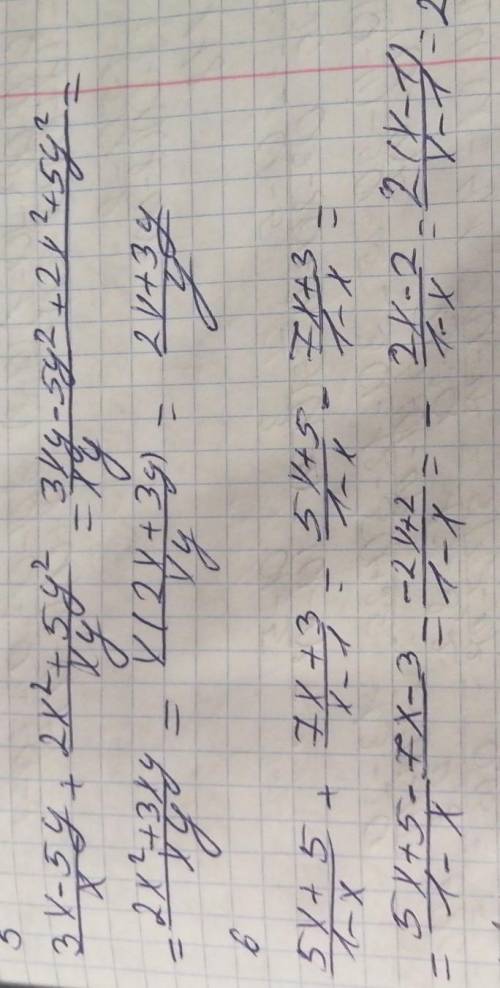 5
\frac{3x-5y}{x} + \frac{2x^2+5y^2}{xy} = \frac{3xy-5y^2+2x^2+5y^2}{xy} =
= \frac{2x^2+3xy}{xy} = \frac{x(2x+3y)}{xy} = \frac{2x+3y}{y}
6
\frac{5x+5}{1-x} + \frac{7x+3}{x-1} = \frac{5x+5}{1-x} - \frac{7x+3}{1-x} =
= \frac{5x+5-7x-3}{1-x} = \frac{-2x+2}{1-x} = - \frac{2x-2}{1-x} = \frac{2(x-1)}{x-1} = 2